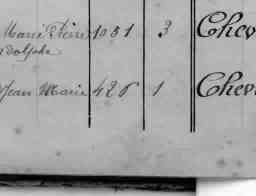 Marie Pierre 1051 3 Chev
Adolphe
Jean Marie 426 1 Chev